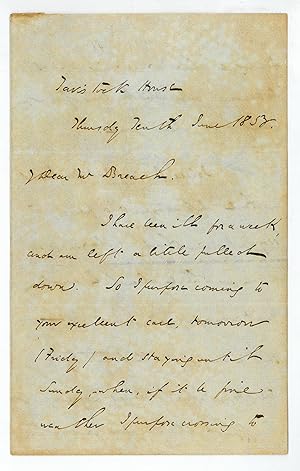 Tavistock House
Thursday June 1853.
Dear Mr Breach.
I have been ill for a week,
and am left a little pulled
down. So I purpose coming to
your excellent care, tomorrow
(Friday) and staying until
Sunday, when, if it be fine
weather I purpose crossing to